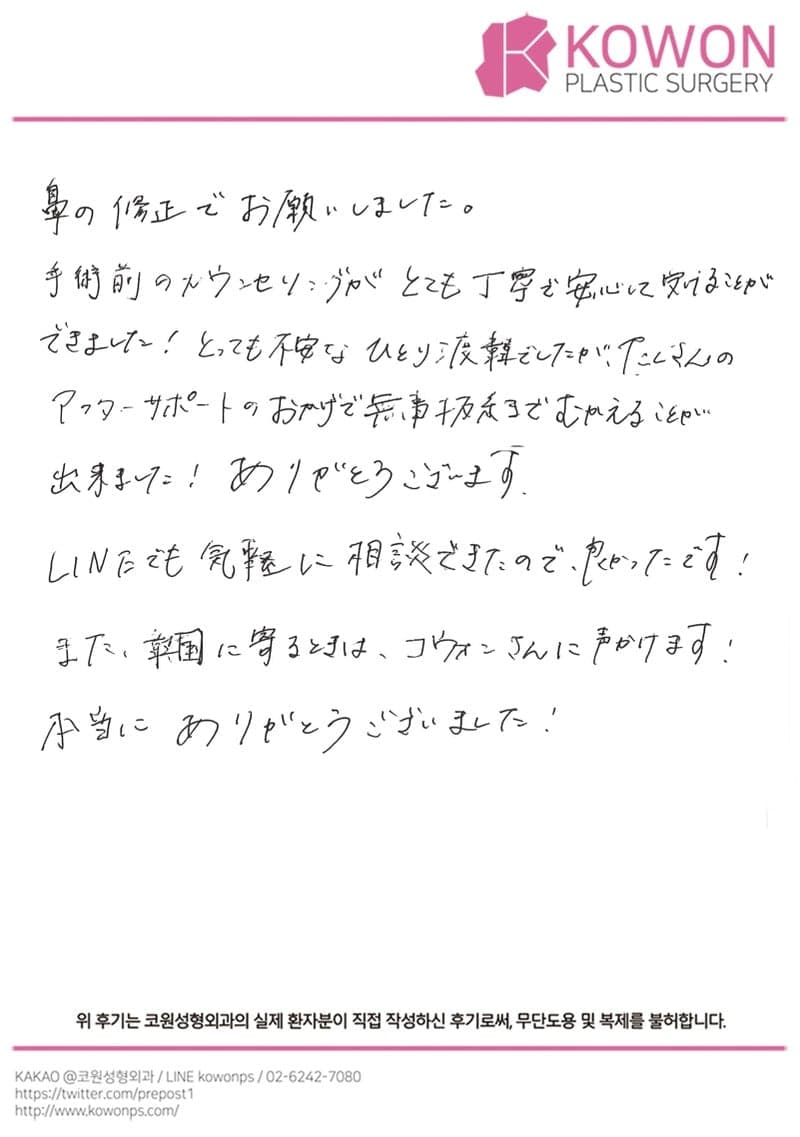 KOWON
PLASTIC SURGERY
鼻の修正でお願いしました。
手術前のカウンセリングがとても丁寧で安心して受けることが
できました!とっても不安なひとり渡韓でしたが、たくさんの
アフターサポートのおかげで無事抜糸までむかえることが
出来ました!ありがとうございます.
LINEでも気軽に相談できたので、良かったです!
また、韓国に寄るときは、コウォンさんに声かけます!
本当にありがとうございました!
위 후기는 코원성형외과의 실제 환자분이 직접 작성하신 후기로써, 무단도용 및 복제를 불허합니다.
KAKAO @코원성형외과 / LINE kowonps / 02-6242-7080
https://twitter.com/prepost1
http://www.kowonps.com/